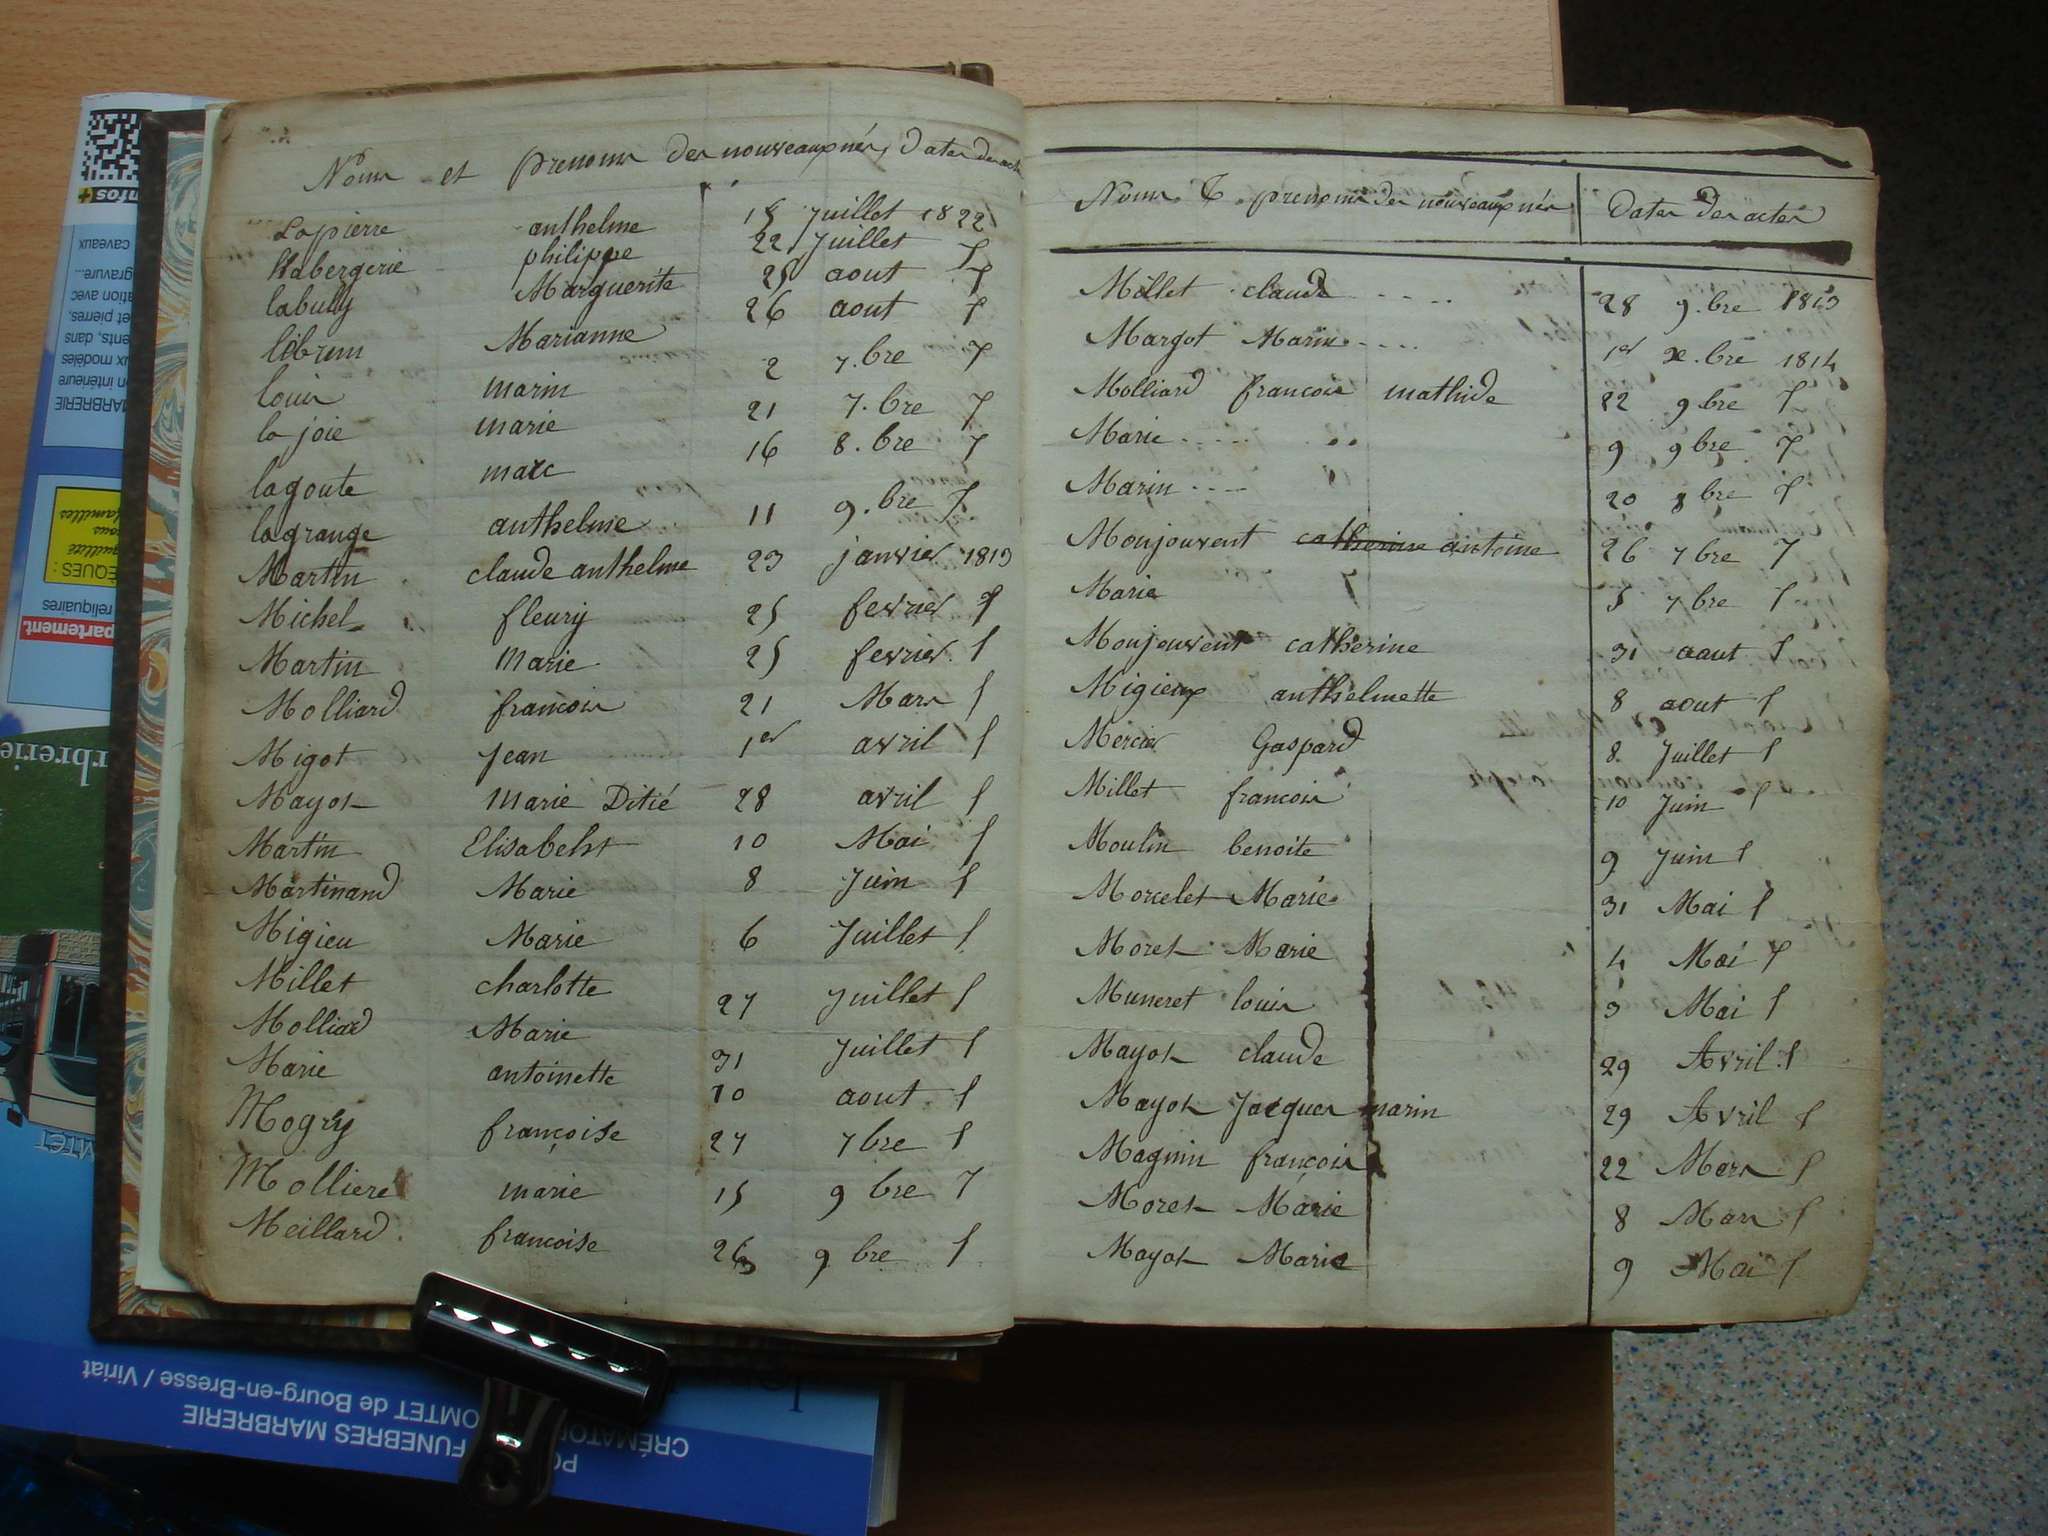 Noms et prenoms des nouveaux nés, Dates des act
Lapierre anthelme 15 Juillet 1822
labergerie philippe 22 Juillet 7
labully Marguerite 25 aout 7
lebrun Marianne 26 aout 7
louis marin 2 7.bre 7
la joie marie 21 7.bre 7
lagoute marc 16 8.bre 7
lagrange anthelme 11 9.bre 7
Martin claude anthelme 23 janvier 1813
Michel fleury 25 fevrier 7
Martin Marie 25 fevrier 7
Molliard francois 21 Mars 7
Migot jean 1er avril 7
Mayot Marie Ditié 28 avril 7
Martin Elisabeht 10 Mai 7
Martinand Marie 8 Juin 7
Migieu Marie 6 Juillet 7
Millet charlotte 27 Juillet 7
Molliard Marie 31 Juillet 7
Marie antoinette 10 aout 7
Mogry françoise 27 7bre 7
Molliere marie 15 9bre 7
Meillard francoise 26 9bre 7
Noms & prenoms des nouveaux nés Dates des actes
Millet claude 28 9.bre 1813
Margot Marie 1er x.bre 1814
Molliard francois mathide 22 9bre 7
Marie 9 9bre 7
Marin 20 8bre 7
Monjouvent catherine antoine 26 7bre 7
Marie 7 5 7bre 7
Monjouvent catherine 31 aout 7
Migieux anthelmette 8 aout 7
Mercier Gaspard 8 Juillet 7
Millet francois 10 Juin 7
Moulin benoite 9 Juin 7
Morcelet Marie 31 Mai 7
Moret Marie 4 Mai 7
Muneret louis 3 Mai 7
Mayot claude 29 Avril 7
Mayot Jacques marin 29 Avril 7
Magnin françois 22 Mars 7
Moret Marie 8 Mars 7
Mayot Marie 9 Mai 7
infos+
caveaux
gravure...
ation avec
et pierres,
ents, dans
ux modèles
on intérieure
MARBRERIE
familles
vous
quillité
ÈQUES :
reliquaires
partement
rbrerie
MTET
OMTET de Bourg-en-Bresse / Viriat
FUNEBRES MARBRERIE
CRÉMATO